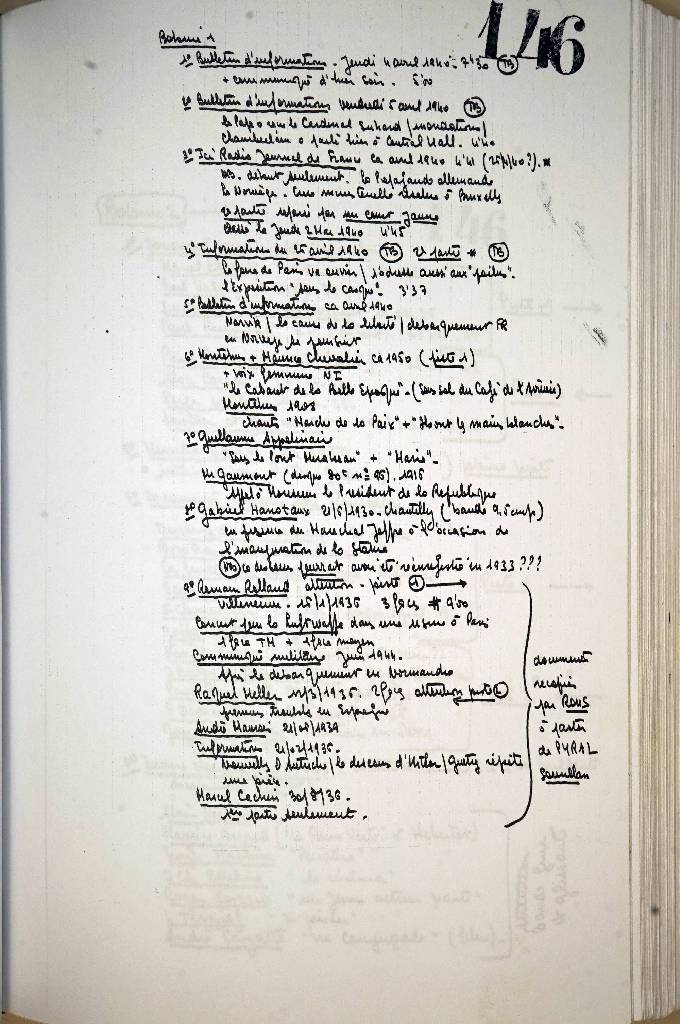 146
Bobine 1
1° Bulletin d'information. Jeudi 4 avril 1940 = 7h30 TB
+ communiqué d'hier soir. 5'00
2° Bulletin d'information vendredi 5 avril 1940 TB
le Pape reçu le Cardinal Suhard / inondations /
Chamberlain a parlé hier à Central Hall. 4'40
3° Ici Radio Journal de France ca avril 1940 4'41 (25/4/40?). *
NB. début seulement. la Propagande allemande
la Norvège. à Bruxelles
2e partie repéré par un carré jaune
le Jeudi 2 Mai 1940 4'45
4° Information du 25 avril 1940 TB 2e partie * TB
la foire de Paris va ouvrir / s'adresse aussi aux "poilus".
l'Exposition "sous le casque". 3'37
5° Bulletin d'information ca avril 1940
Narvik / la cause de la liberté / débarquement FR
en Norvège se poursuit
6° Montéhus + Maurice Chevalier ca 1950 (piste 1)
+ voix féminine NI
"le Cabaret de la Belle Epoque". (Sous sol du Café de )
Montéhus 1908
chante "Marche de la Paix" + "Ils ont les mains blanches".
7° Guillaume Appolinaire
"Sous le Pont Mirabeau" + "Marie".
Mr Gaumont (disque 80t n° 95). 1915
Appel à Monsieur le Président de la République
8° Gabriel Hanotaux 21/5/1930. Chantilly (bande 9.5 cm/s)
en présence du Maréchal Joffre à l'occasion de
l'inauguration de la Statue
NB ce discours pourrait avoir été réenregistré en 1933 ???
9° Romain Rolland attention. piste 1 →
Villeneuve. 15/1/1936 3 faces # 9'00
Concert pour la Luftwaffe dans une usine à Paris
1 face TM + 1 face moyen
Communiqué militaire Juin 1944.
Après le débarquement en Normandie
Raquel Meller 11/3/1936. 2 faces attention piste 2
premiers troubles en Espagne
André Maurois 21/08/1939
Information 21/02/1936.
/ le discours d'Hitler / Guitry répète
une pièce.
Marcel Cachin 30/8/36.
1ère partie seulement.
documents
recopiés
par
à partir
de PYRAL